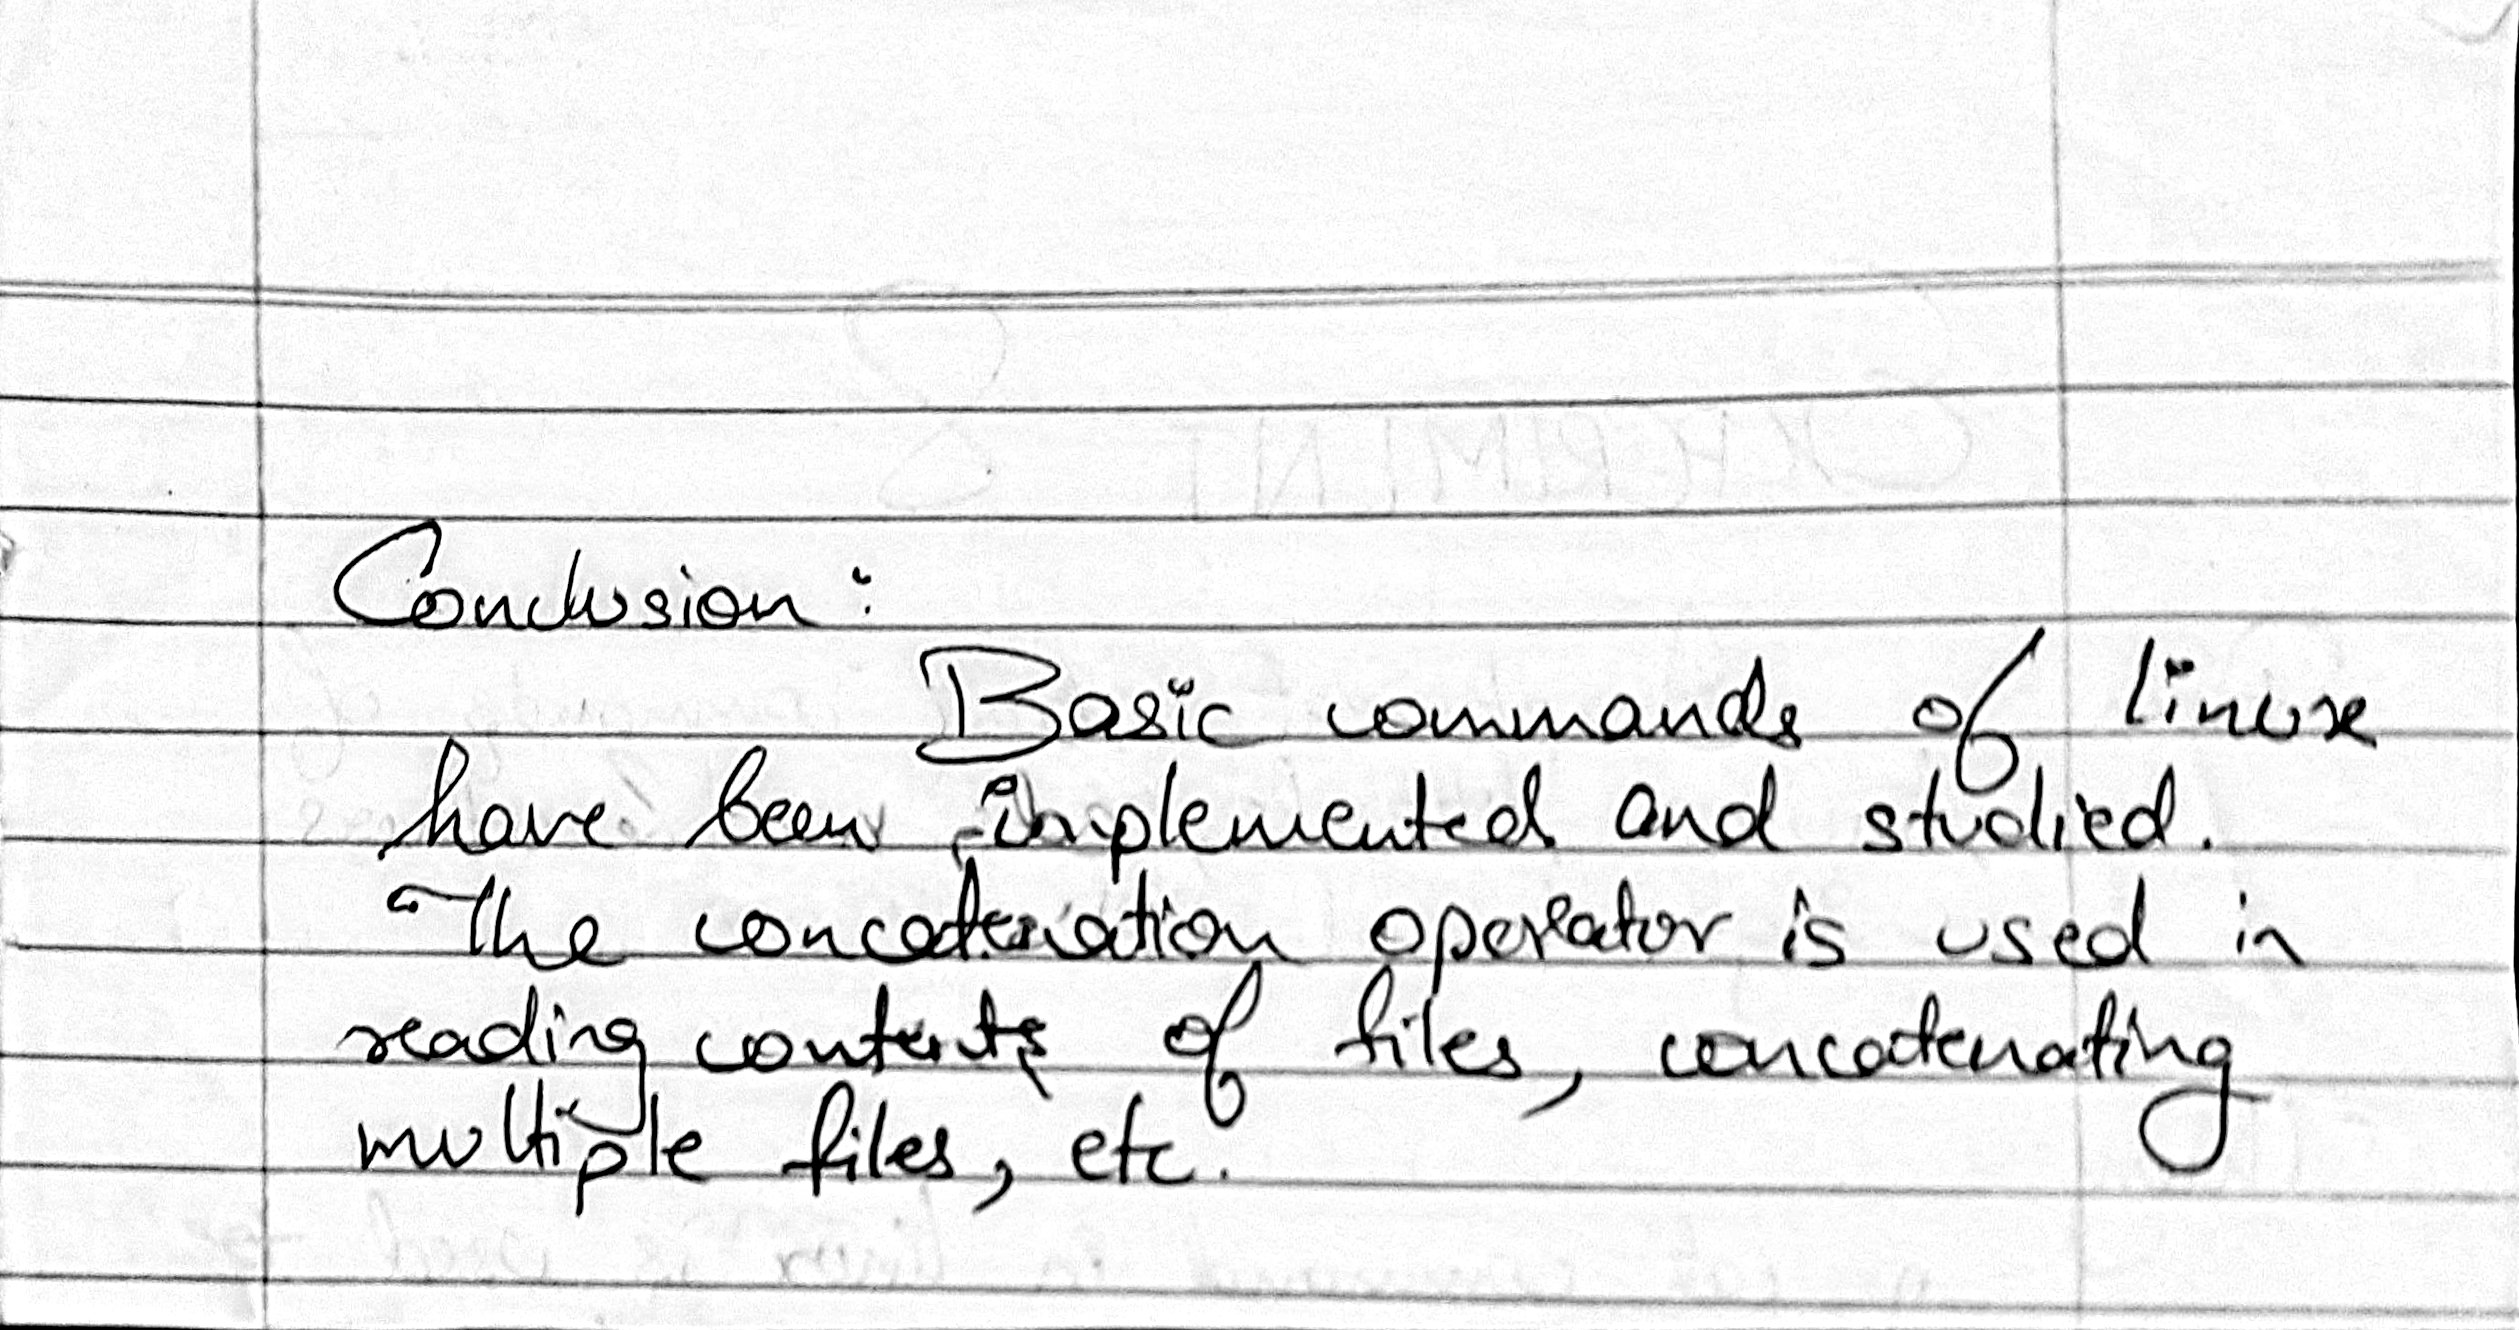 Conclusion :
Basic commands of linux
have been implemented and studied.
The concatenation operator is used in
reading contents of files, concatenating
multiple files, etc.